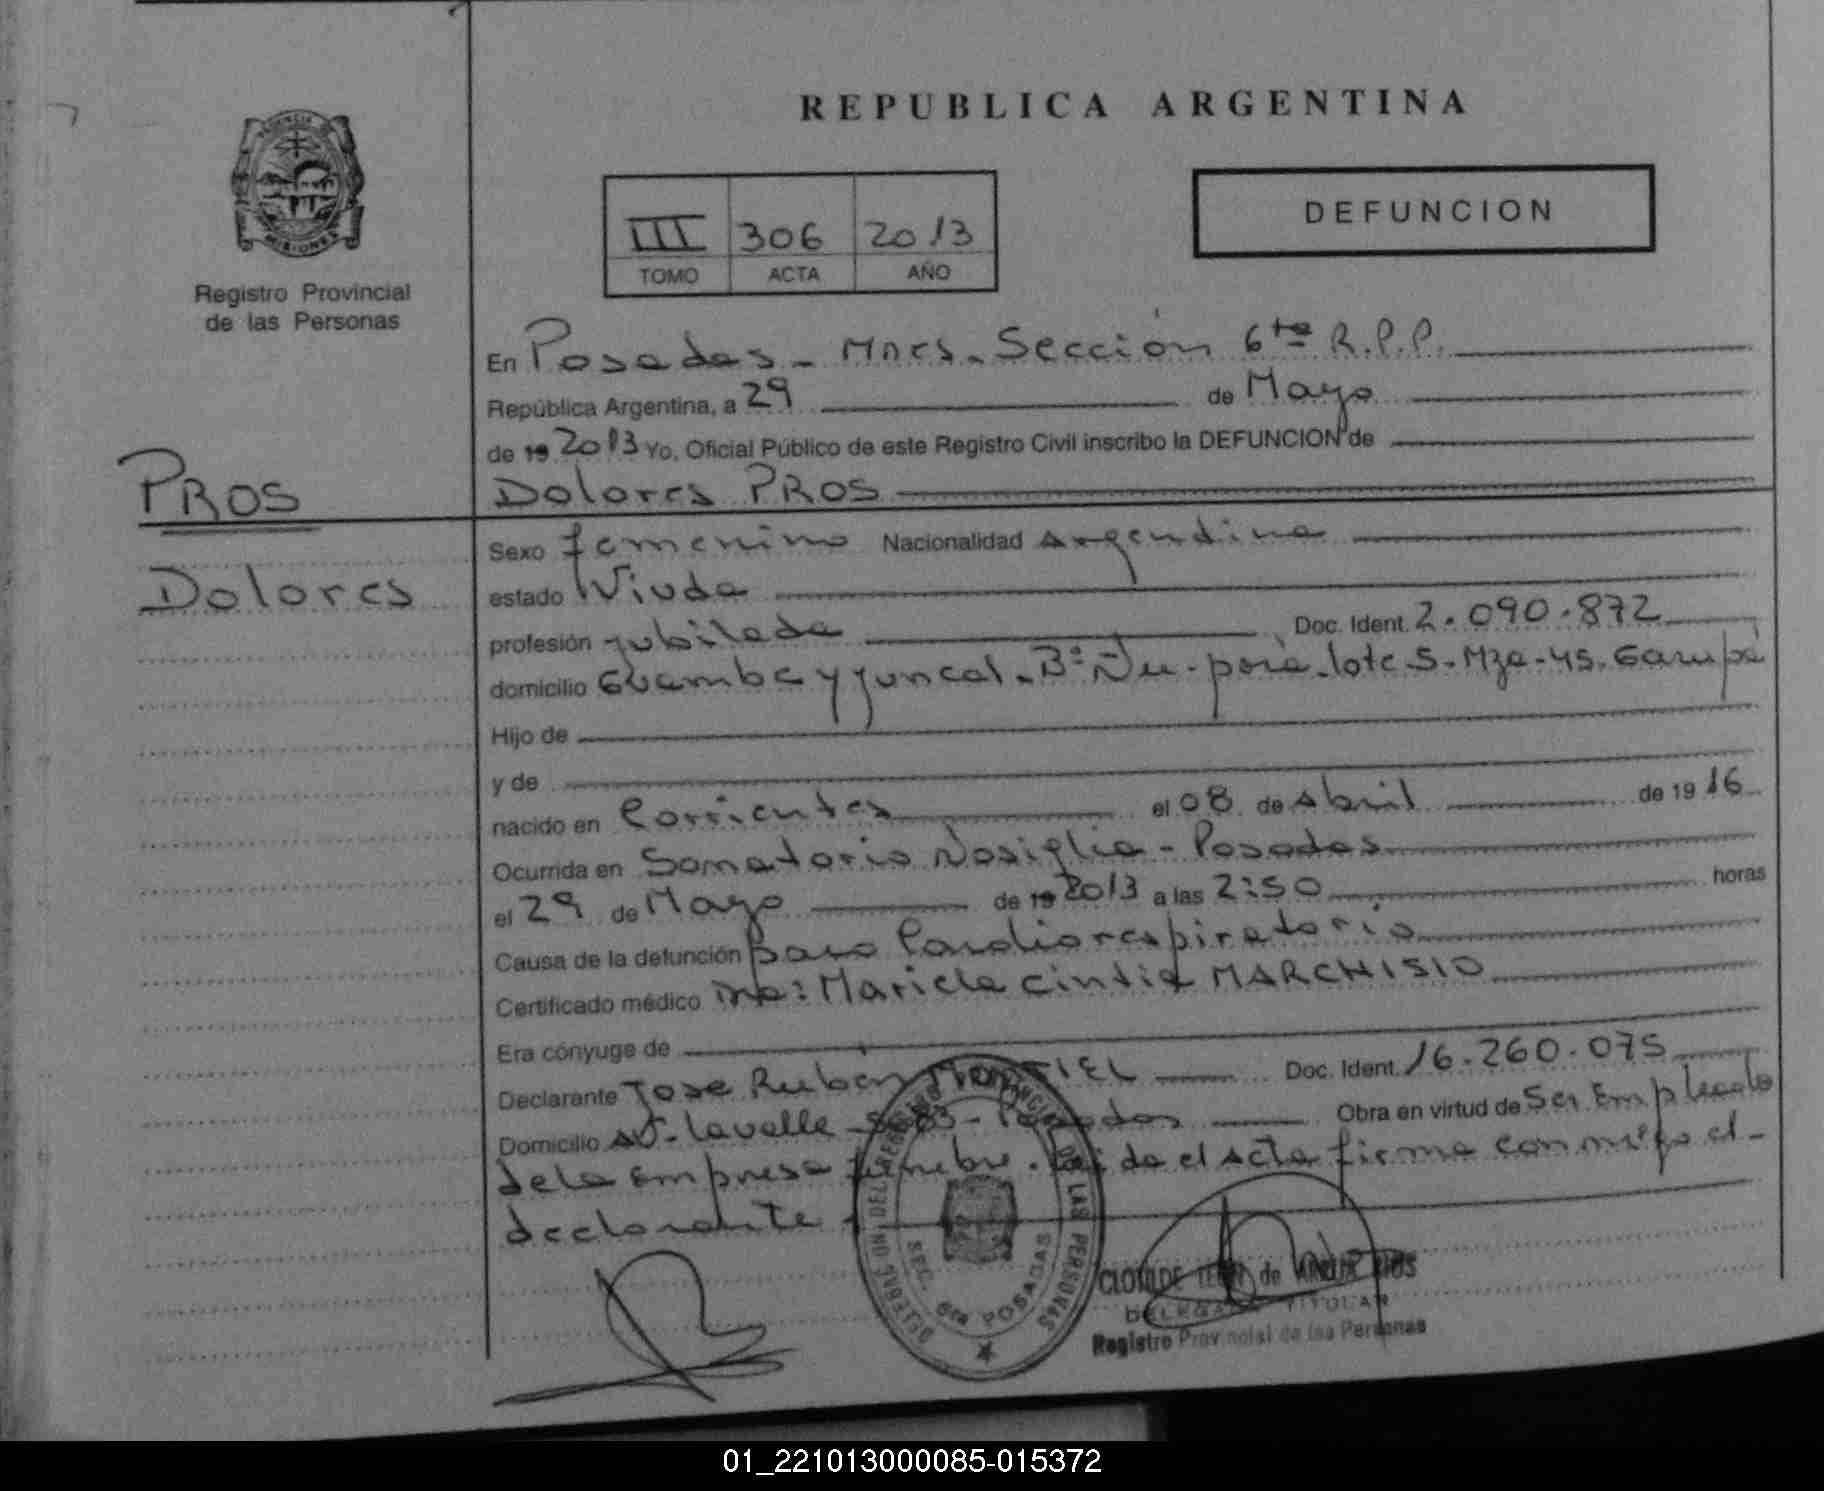 REPUBLICA ARGENTINA
PROVINCIA DE
MISIONES
Registro Provincial
de las Personas
III 306 2013
TOMO ACTA AÑO
DEFUNCION
En Posadas - Mnes. Sección 6ta R.P.P.
República Argentina, a 29 de Mayo
de 19 2013 Yo, Oficial Público de este Registro Civil inscribo la DEFUNCION de
PROS
Dolores PROS
Dolores
Sexo femenino Nacionalidad Argentina
estado Viuda
profesión jubilada Doc. Ident. 2.090.872
domicilio Guembe y juncal - Bº Ñu - porá - lote 5 - Mza - 45. Garupá
Hijo de
y de
nacido en Corrientes el 08 de Abril de 19 16
Ocurrida en Sanatorio Nosiglia - Posadas
el 29 de Mayo de 19 2013 a las 2:50 horas
Causa de la defunción paro Cardiorespiratorio
Certificado médico Dra: Mariela Cintia MARCHISIO
Era cónyuge de
Declarante Jose Ruben MONTIEL Doc. Ident. 16.260.075
Domicilio Av. Lavalle - Posadas Obra en virtud de Ser Empleado
de la Empresa funebre. Leida el Acta firma conmigo el -
declarante
DELEGACION DEL REGISTRO PROVINCIAL DE LAS PERSONAS
SEC. 6ta POSADAS
CLOTILDE de RIOS
DELEGADA TITULAR
Registro Provincial de las Personas
01_221013000085-015372